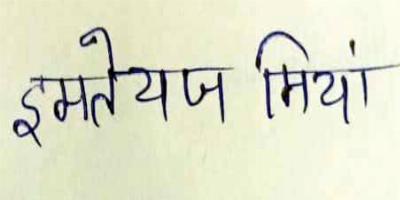 इमतेयज मियां